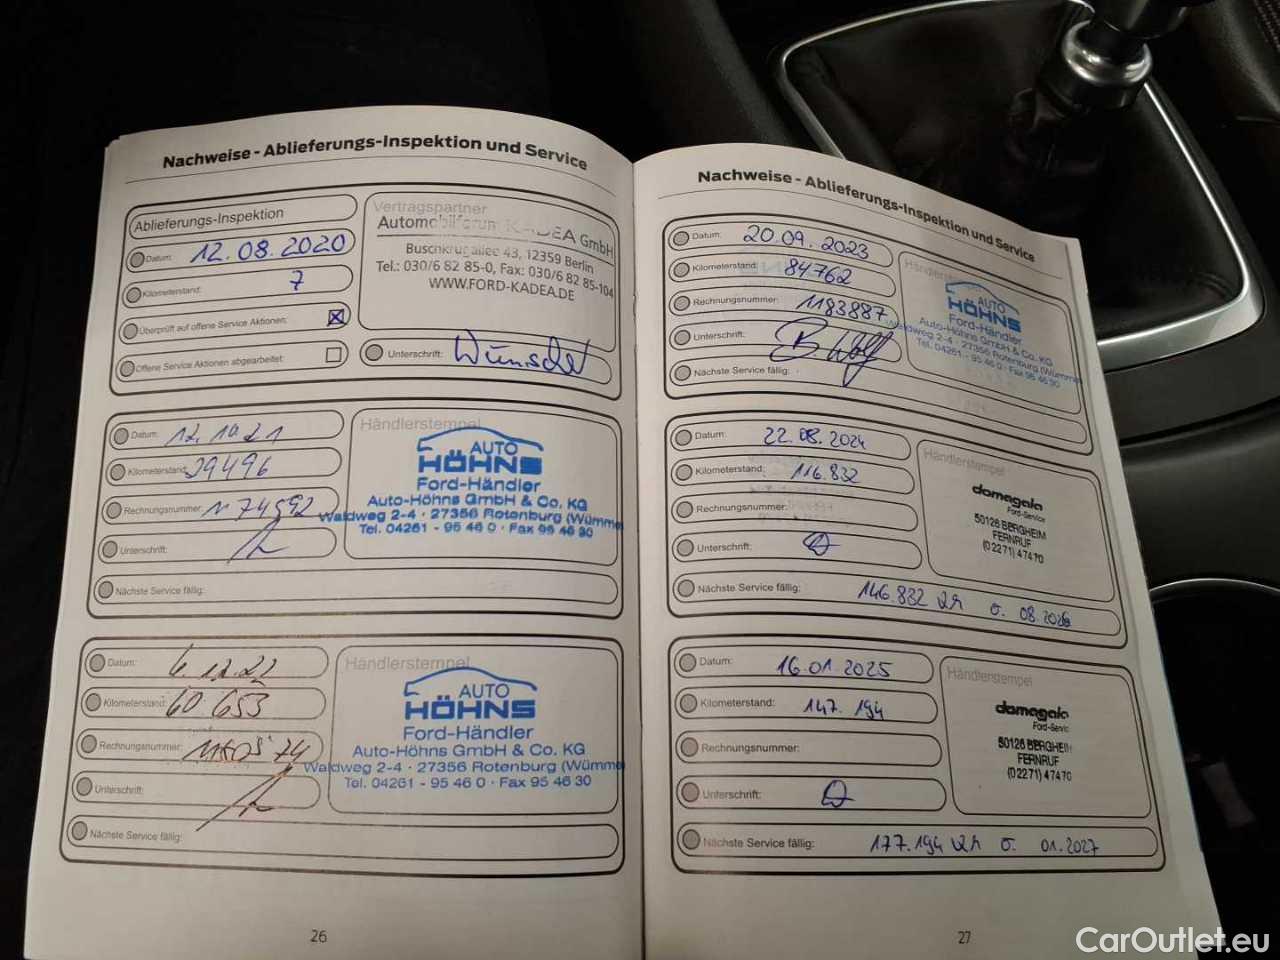 Nachweise - Ablieferungs-Inspektion und Service
Ablieferungs-Inspektion
Datum: 12.08.2020
Kilometerstand: 7
Überprüft auf offene Service Aktionen:
Offene Service Aktionen abgearbeitet:
Vertragspartner
Automobilforum KADEA GmbH
Buschkrugallee 43, 12359 Berlin
Tel.: 030/6 82 85-0, Fax: 030/6 82 85-104
WWW.FORD-KADEA.DE
Unterschrift: Wünsche
Datum: 12.10.21
Kilometerstand: 29496
Rechnungsnummer: 1174592
Unterschrift:
Nächste Service fällig:
Händlerstempel
AUTO
HÖHNS
Ford-Händler
Auto-Höhns GmbH & Co. KG
Waldweg 2-4 · 27356 Rotenburg (Wümme)
Tel. 04261 - 95 46 0 · Fax 95 46 30
Datum: 6.12.22
Kilometerstand: 60.653
Rechnungsnummer:
Unterschrift:
Nächste Service fällig:
Händlerstempel
AUTO
HÖHNS
Ford-Händler
Auto-Höhns GmbH & Co. KG
Waldweg 2-4 · 27356 Rotenburg (Wümme
Tel. 04261 - 95 46 0 · Fax 95 46 30
26
Nachweise - Ablieferungs-Inspektion und Service
Datum: 20.09.2023
Kilometerstand: 84762
Rechnungsnummer: 1183887
Unterschrift: B. Wolf
Nächste Service fällig:
Händlerstempel
AUTO
HÖHNS
Ford-Händler
Auto-Höhns GmbH & Co. KG
Waldweg 2-4 · 27356 Rotenburg (Wümme
Tel. 04261 - 95 46 0 · Fax 95 46 30
Datum: 22.08.2024
Kilometerstand: 116.832
Rechnungsnummer:
Unterschrift:
Nächste Service fällig: 146.832 km o. 08.2026
Händlerstempel
domagala
Ford-Service
50126 BERGHEIM
FERNRUF
(02271) 47470
Datum: 16.01.2025
Kilometerstand: 147.194
Rechnungsnummer:
Unterschrift:
Nächste Service fällig: 177.194 km o. 01.2027
Händlerstempel
domagala
Ford-Servic
50126 BERGHEIM
FERNRUF
(02271) 47470
27
CarOutlet.eu